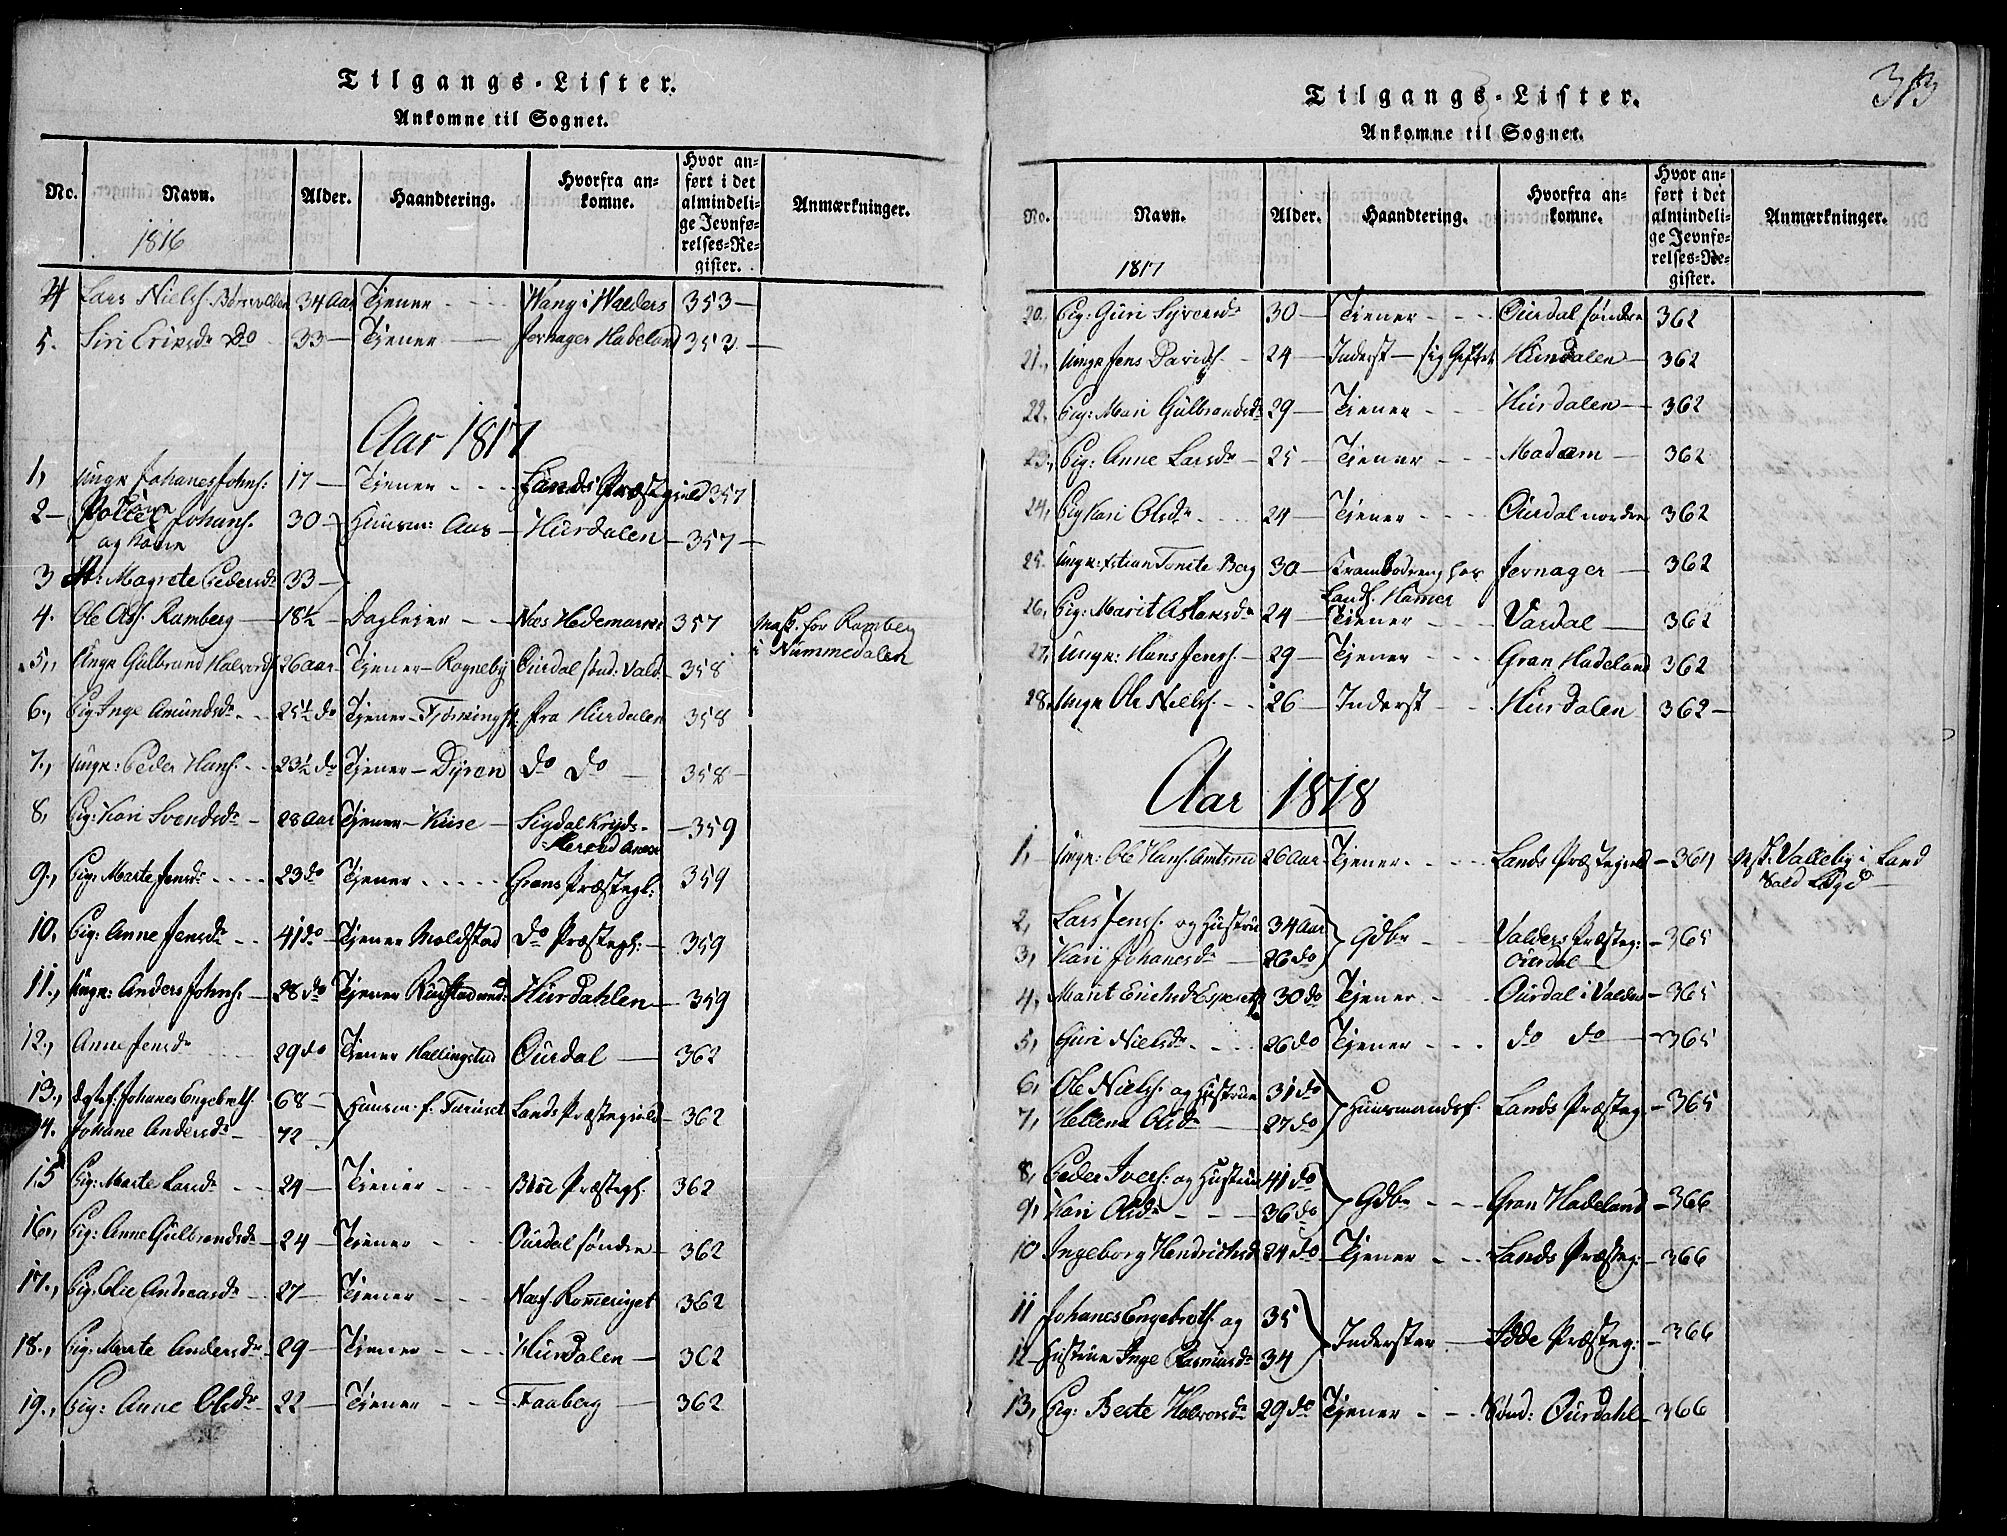 Tilgangs-Lister.
Ankomne til Sognet.
No. Navn. Alder. Haandtering. Hvorfra an- komne. Hvor an- ført i det almindeli- ge Jevnfø- relses-Re- gister. Anmærkninger.
1816
4 Lars Niels. 34 Aar Tjener Wang i Walders 353
5. Siri Ericsdr Do 33 Tjener Jevnager Hadeland 353
Aar 1817
1, Ungk Johanes Johns. 17 Tjener Lands Præstegield 357
2 Johans. 30 Huusm: Aas Hurdalen 357
og Kone
3 Magrete Pedersdr 33
4. Ole Ramberg 18½ Daglejer Næs Hedemarken 357 for Ramberg
i Nummedalen
5., Ungk Gulbrand Halvords 26 aar Tjener Rogneby Ourdal sønd: Vald. 358
6., Pig Inge Amundsdr 25½ do Tjener fra Hurdalen 358
7., Ungk: Peder Hans. 23½ do Tjener Dyren do do 358
8, Pig: Kari Svendsdr 28 Aar Tjener Kiise Sigdal Kryds- 359
-Herred
9., Pig: Marte Jensdr 23 do Tjener Grans Præstegl: 359
10, Pig: Anne Jensdr 41 do Tjener Moldstad do Præstegl: 359
11., Ungk: Anders Johns. 28 do Tjener Hurdahlen 359
12., Anne Jensdr 29 do Tjener Hallingstad Ourdal 362
13., Johanes Engebreths. 68 Huusm: f. Lands Præstegield 362
14. Johane Andersdr 72
15 Pig: Marte Larsdr 24 Tjener Præstegl. 362
16., Pig: Anne Gulbrandsdr 24 Tjener Ourdal søndre 362
17., Pig: Olie Andreasdr 27 Tjener Næs Romeriget 362
18., Pig: Marte Andersdr 29 Tjener Hurdalen 362
19., Pig: Anne Olsdr 22 Tjener Faaberg 362
Tilgangs-Lister. 313
Ankomne til Sognet.
No. Navn. Alder. Haandtering. Hvorfra an- komne. Hvor an- ført i det almindeli- ge Jevnfø- relses-Re- gister. Anmærkninger.
1817
20., Pig: Guri Syversdr 30 Tjener Ourdal søndre 362
21., Ungk Jens Davids. 24 Inderst sig Giftet Hurdalen 362
22. Pig: Mari Gulbrandsdr 29 Tjener Hurdalen 362
23., Pig: Anne Larsdr 25 Tjener Modum 362
24, Pig Kari Olsdr 24 Tjener Ourdal nordre 362
25. Ungk: Tonste Berg 30 Krambodreng hos Jevnager 362
Hamer
26, Pig: Marit Aslaksdr 24 Tjener Vardal 362
27, Ungk: Hans Jens. 29 Tjener Gran Hadeland 362
28, Ungk Ole Niels. 26 Inderst Hurdalen 362
Aar 1818
1, Ungk: Ole Hans. 26 Aar Tjener Lands Præstegield 364 Valleby i Land
2, Lars Jens. og Hustrue 34 Aar Gdbr Valders Præsteg: 365
3, Kari Johanesdr 26 do Ourdal
4, Marit Erichsdr 30 do Tjener Ourdal i Valders 365
5, Guri Nielsdr 26 do Tjener do do 365
6, Ole Niels. og Hustrue 31 do Huusmandsf. Lands Præsteg. 365
7, Hellena Olsdr 27 do
8, Peder Ivers. og Hustrue 41 do Gdbr Gran Hadeland 366
9, Kari Olsdr 36 do
10 Ingeborg Hendrichsdr 24 do Tjener Lands Præsteg: 366
11 Johanes Engebreths. og 35 Inderster Præsteg: 366
12 Hustrue Inge Rasmusdr 34
13, Pig: Berte Halvorsdr 29 do Tjener Sønd: Ourdahl 366